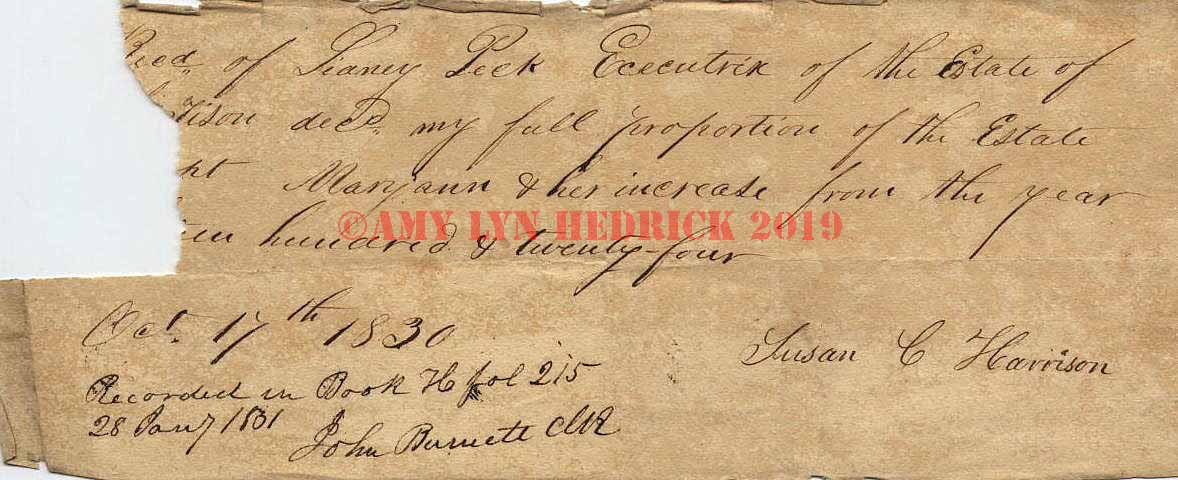 Recd. of Sidney Peck Executrix of the Estate of
decd. my full proportion of the Estate
Maryann & her increase from the year
hundred & twenty-four
©AMY LYN HEDRICK 2019
Oct. 17th 1830
Susan C Harrison
Recorded in Book H fol 215
28 Jany 1831
John Burnett Clk